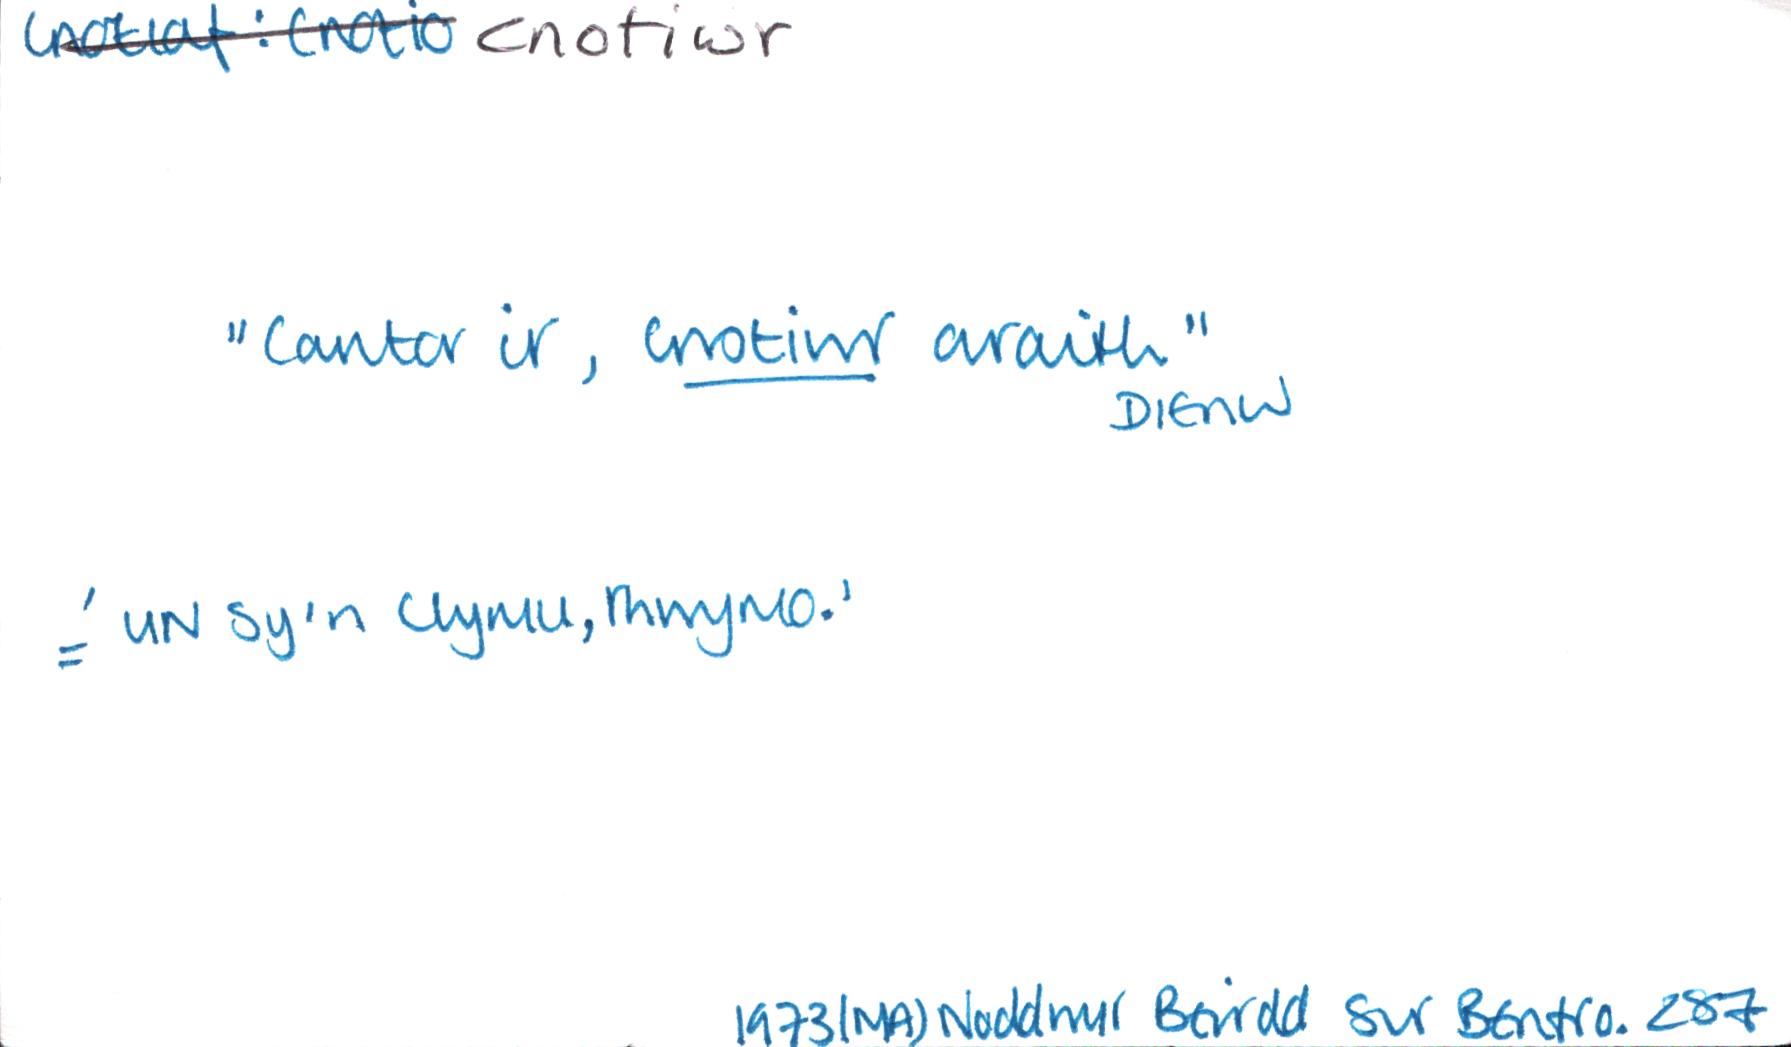 cnotiaf: cnotio cnotiwr
"Cantor ir, cnotiwr araith"
DIENW
= 'UN sy'n Clymu, rhwymo.'
1973 (MA) Noddwyr Beirdd Sir Benfro. 287